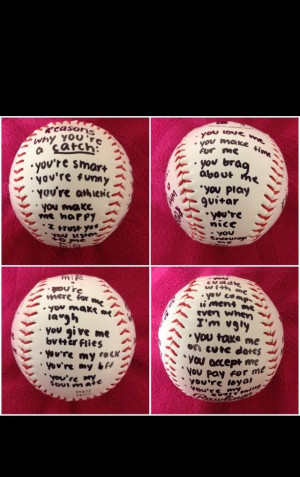 Reasons
why you're
a catch:
· you're smart
· you're funny
· you're athletic
· you make
me happy
· I trust you
· you listen
to me
· you love me
· you make time
for me
· you brag
about me
· you play
guitar
· you're
nice
· you
encourage
me
· you're
there for me
· you make me
laugh
· you give me
butterflies
· you're my rock
· you're my bff
· you're my
soul mate
· you
cuddle
with me
· you comp
liment me
even when
I'm ugly
· you take me
on cute dates
· you accept me
· you pay for me
· you're loyal
· you're my